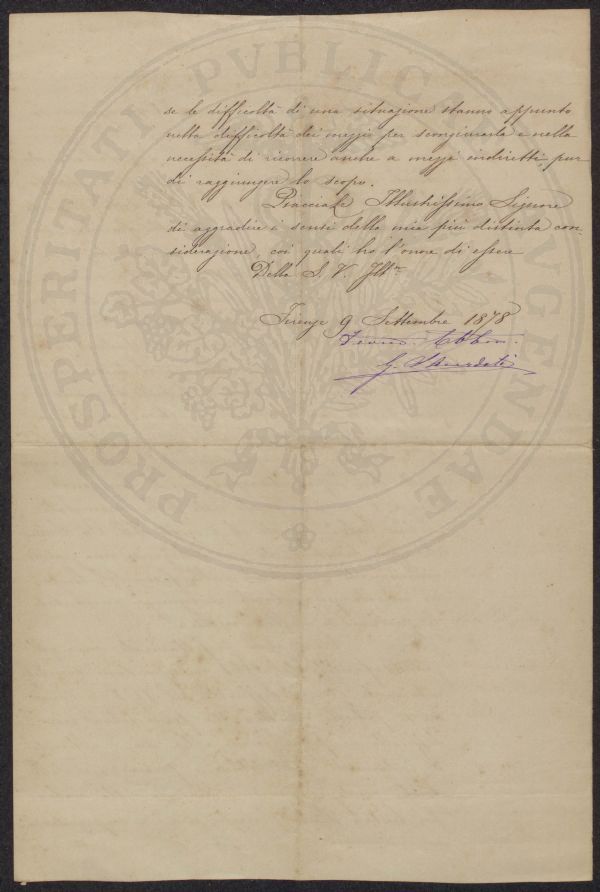 PROSPERITATI PVBLICAE AVGENDAE
se le difficoltà di una situazione stanno appunto
nella difficoltà dei mezzi per scongiurarla e nella
necessità di ricorrere anche a mezzi indiretti pur
di raggiungere lo scopo.
Piacciale Illustrissimo Signore
di aggradire i sensi della mia più distinta con-
siderazione, coi quali ho l'onore di essere
Della S. V. Ill.ma
Firenze 9 Settembre 1878
G.